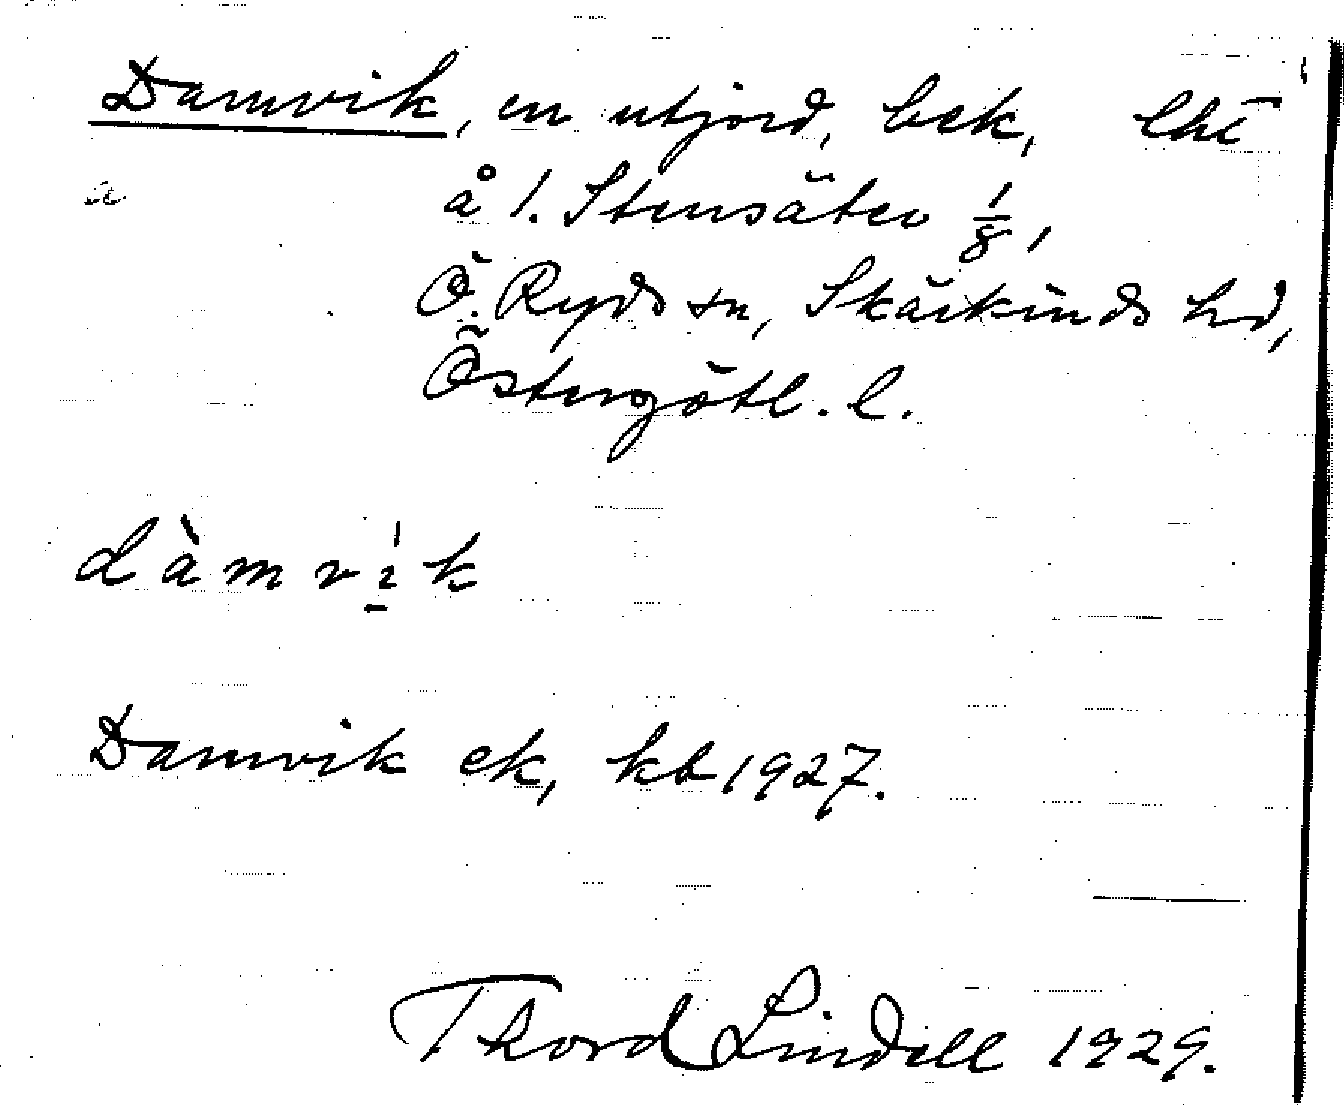 Damvik, en utjord, bek, lht
a
å 1. Stensäter 1/8,
Ö. Ryds sn, Skärkinds hd,
Östergötl. l.
dàmvi̠k
Damvik ek, kb 1927.
Thord Lindell 1929.